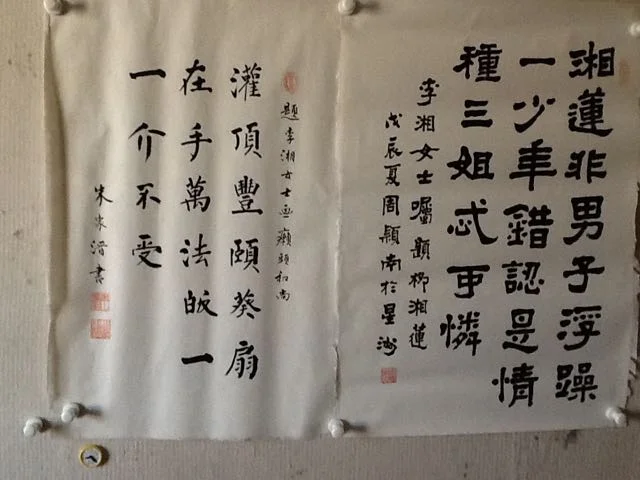 湘蓮非男子浮躁
一少年錯認是情
種三姐忒可憐
李湘女士囑題柳湘蓮
戊辰夏周穎南於星洲
題李湘女士画癩頭和尚
灌頂豐頤葵扇
在手萬法皈一
一介不受
朱家溍書